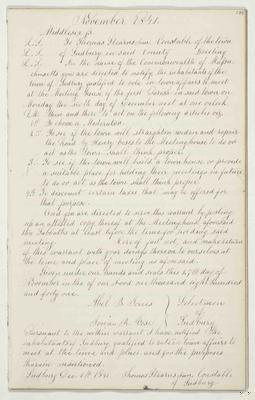 November 1841.
Middlesex ss.
L.S. To Thomas Stearns, jun. Constable of the town
L.S. of Sudbury in said County Greeting
L.S. In the name of the Commonwealth of Massa-
chusetts you are directed to notify the inhabitants of the
town of Sudbury qualified to vote in town affairs to meet
at the Meeting house of the first Parish in said town on
Monday the Sixth day of December next at one oclock
P.M. Then and there to act on the following articles viz.
1st To choose a Moderator.
2d To see if the town will straighten widen and repair
the road by Henry the Meetinghouse to do or
act as the Town shall think proper.
3. To see if the town will build a town house or provide
a suitable place for holding their meetings in future
to do or act as the town shall think proper.
4th To discount certain taxes that may be offered for
that purpose.
And you are directed to serve this warrant by posting
up an attested copy thereof at the Meetinghouse aforesaid
two Sabbaths at least before the time for holding said
meeting. Here of fail not, and make return
of this warrant with your doings thereon to ourselves at
the time and place of meeting as aforesaid.
Given under our hands and seals this 19th day of
November in the of our Lord one thousand eight hundred
and forty one.
Abel B. Jones } Selectmen
of
} Sudbury
Pursuant to the within warrant I have notified the
inhabitants of Sudbury qualified to vote in town affairs to
meet at the time and place and for the purposes
therein mentioned.
Sudbury Dec 6th 1841. Thomas Stearns, jun. Constable
of Sudbury.